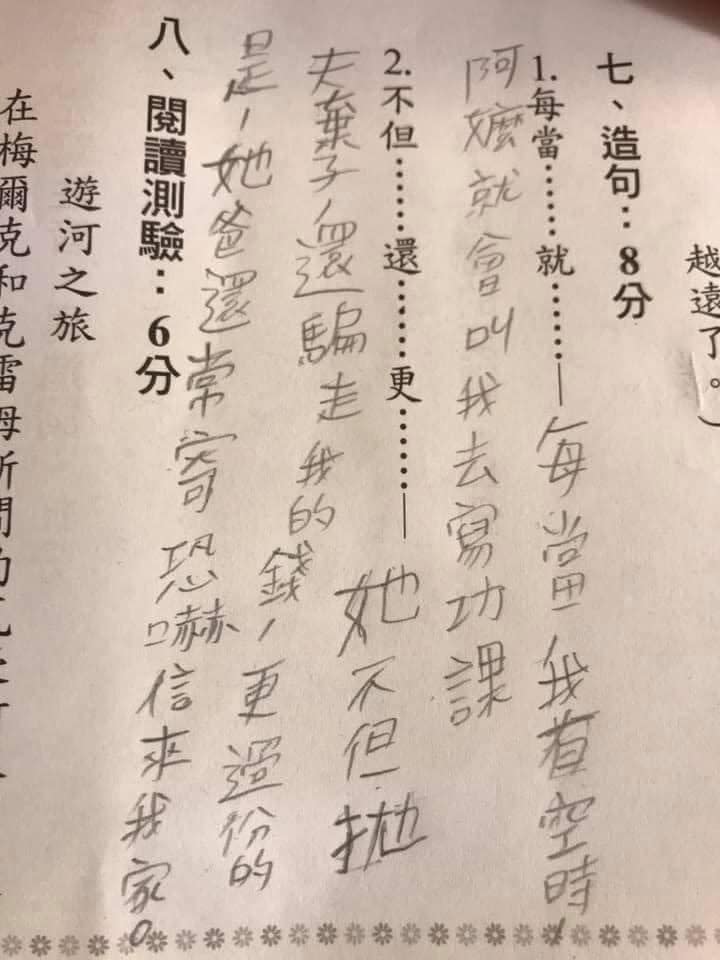 越遠了。)
七、造句：8分
1.每當……就……—每當我有空時，
阿嬤就會叫我去寫功課
2.不但……還……更……—她不但拋
夫棄子，還騙走我的錢，更過份的
是，她爸還常寄恐嚇信來我家。
八、閱讀測驗：6分
遊河之旅
在梅爾克和克雷姆斯間的